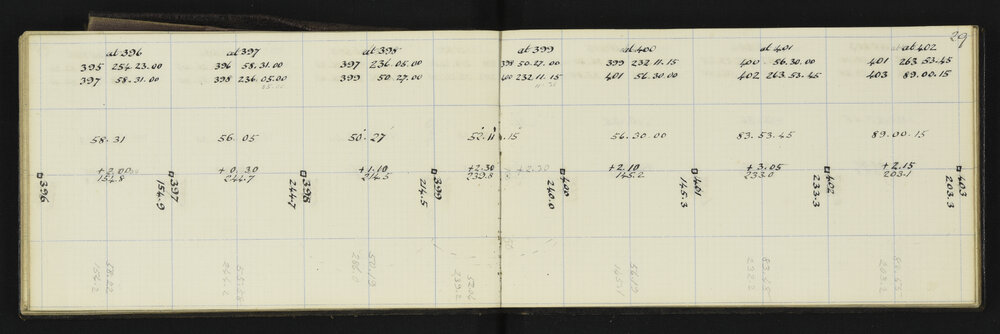 29
at 396 at 397 at 398 at 399 at 400 at 401 at 402
395 254.23.00 396 58.31.00 397 236.05.00 398 50.27.00 399 232.11.15 400 56.30.00 401 263.53.45
397 58.31.00 398 236.05.00 399 50.27.00 400 232.11.15 401 56.30.00 402 263.53.45 403 89.00.15
58.31 56.05 50.27 52.11.15 56.30.00 83.53.45 89.00.15
+2.00 +0.30 +1.10 +2.30 +2.30 +2.10 +3.05 +2.15
154.8 244.7 214.5 239.8 145.2 233.0 203.1
396 397 398 399 400 401 402 403
154.9 244.7 214.5 240.0 145.3 233.3 203.3
58.22 50.19 52.06 56.19 83.45
154.2 239.2 232.2